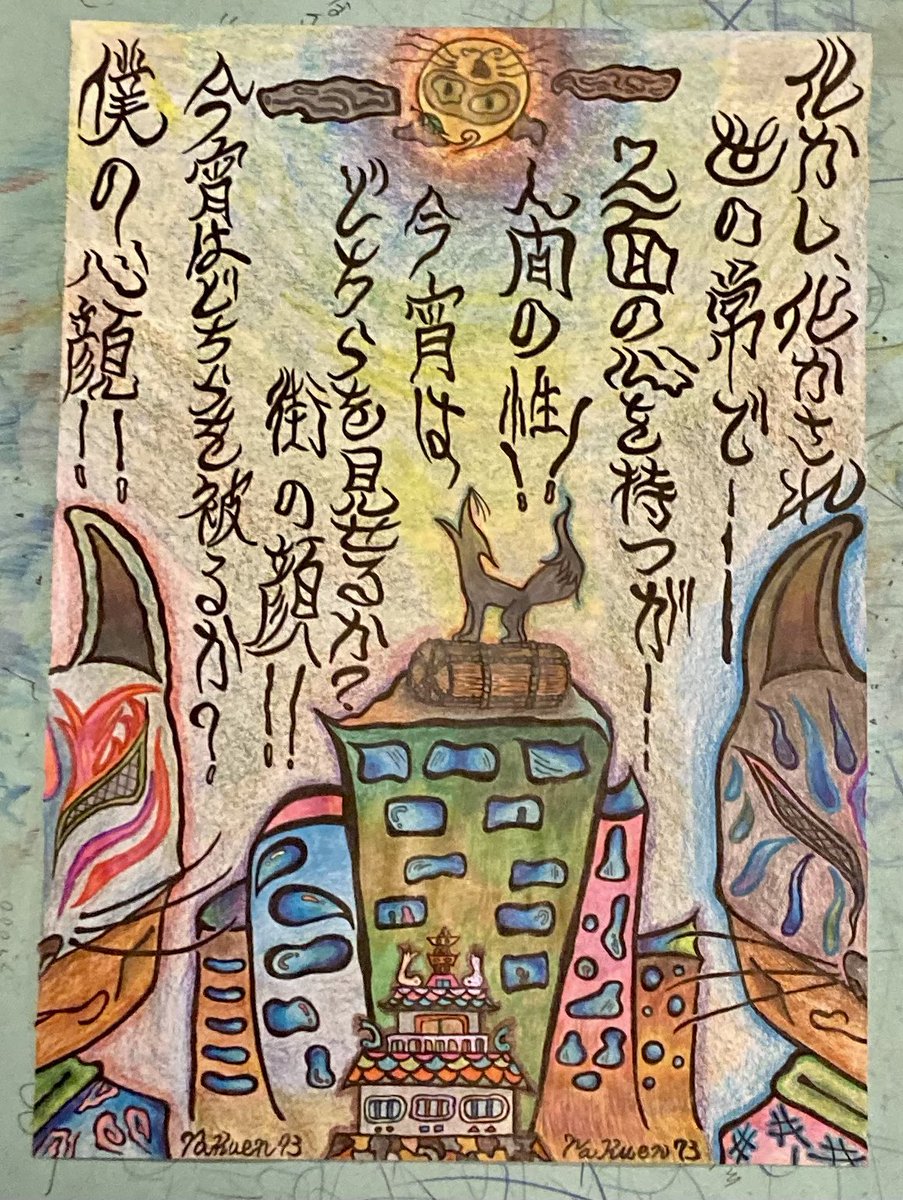 化かし、化かされ
世の常で―――
二面の心を持つが―――
人間の性!!
今宵は、
どちらを見せるか?
街の顔!!
今宵はどちらを被るか?
僕の心顔!!
YaKuen 73
YaKuen 73